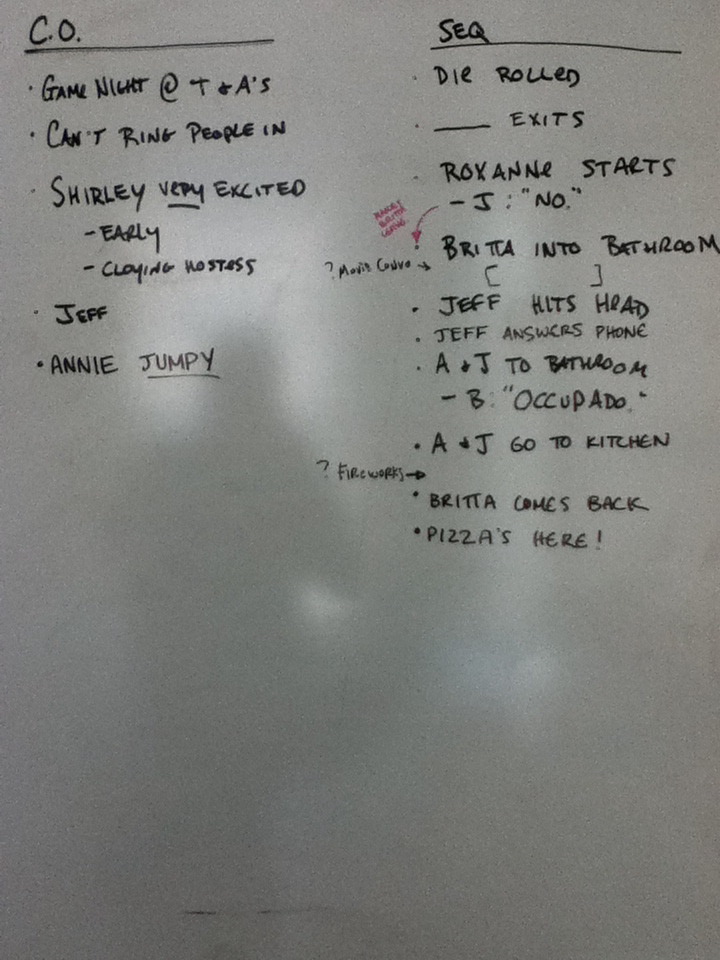 C.O.
· GAME NIGHT @ T & A'S
· CAN'T RING PEOPLE IN
· SHIRLEY VERY EXCITED
- EARLY
- CLOYING HOSTESS
· JEFF
· ANNIE JUMPY
SEQ
· DIE ROLLED
· ___ EXITS
· ROXANNE STARTS
- J: "NO."
BRITTA
· BRITTA INTO BATHROOM
? MOVIE CONVO →
[ ]
· JEFF HITS HEAD
· JEFF ANSWERS PHONE
· A & J TO BATHROOM
- B: "OCCUPADO."
· A & J GO TO KITCHEN
? FIREWORKS →
· BRITTA COMES BACK
· PIZZA'S HERE!